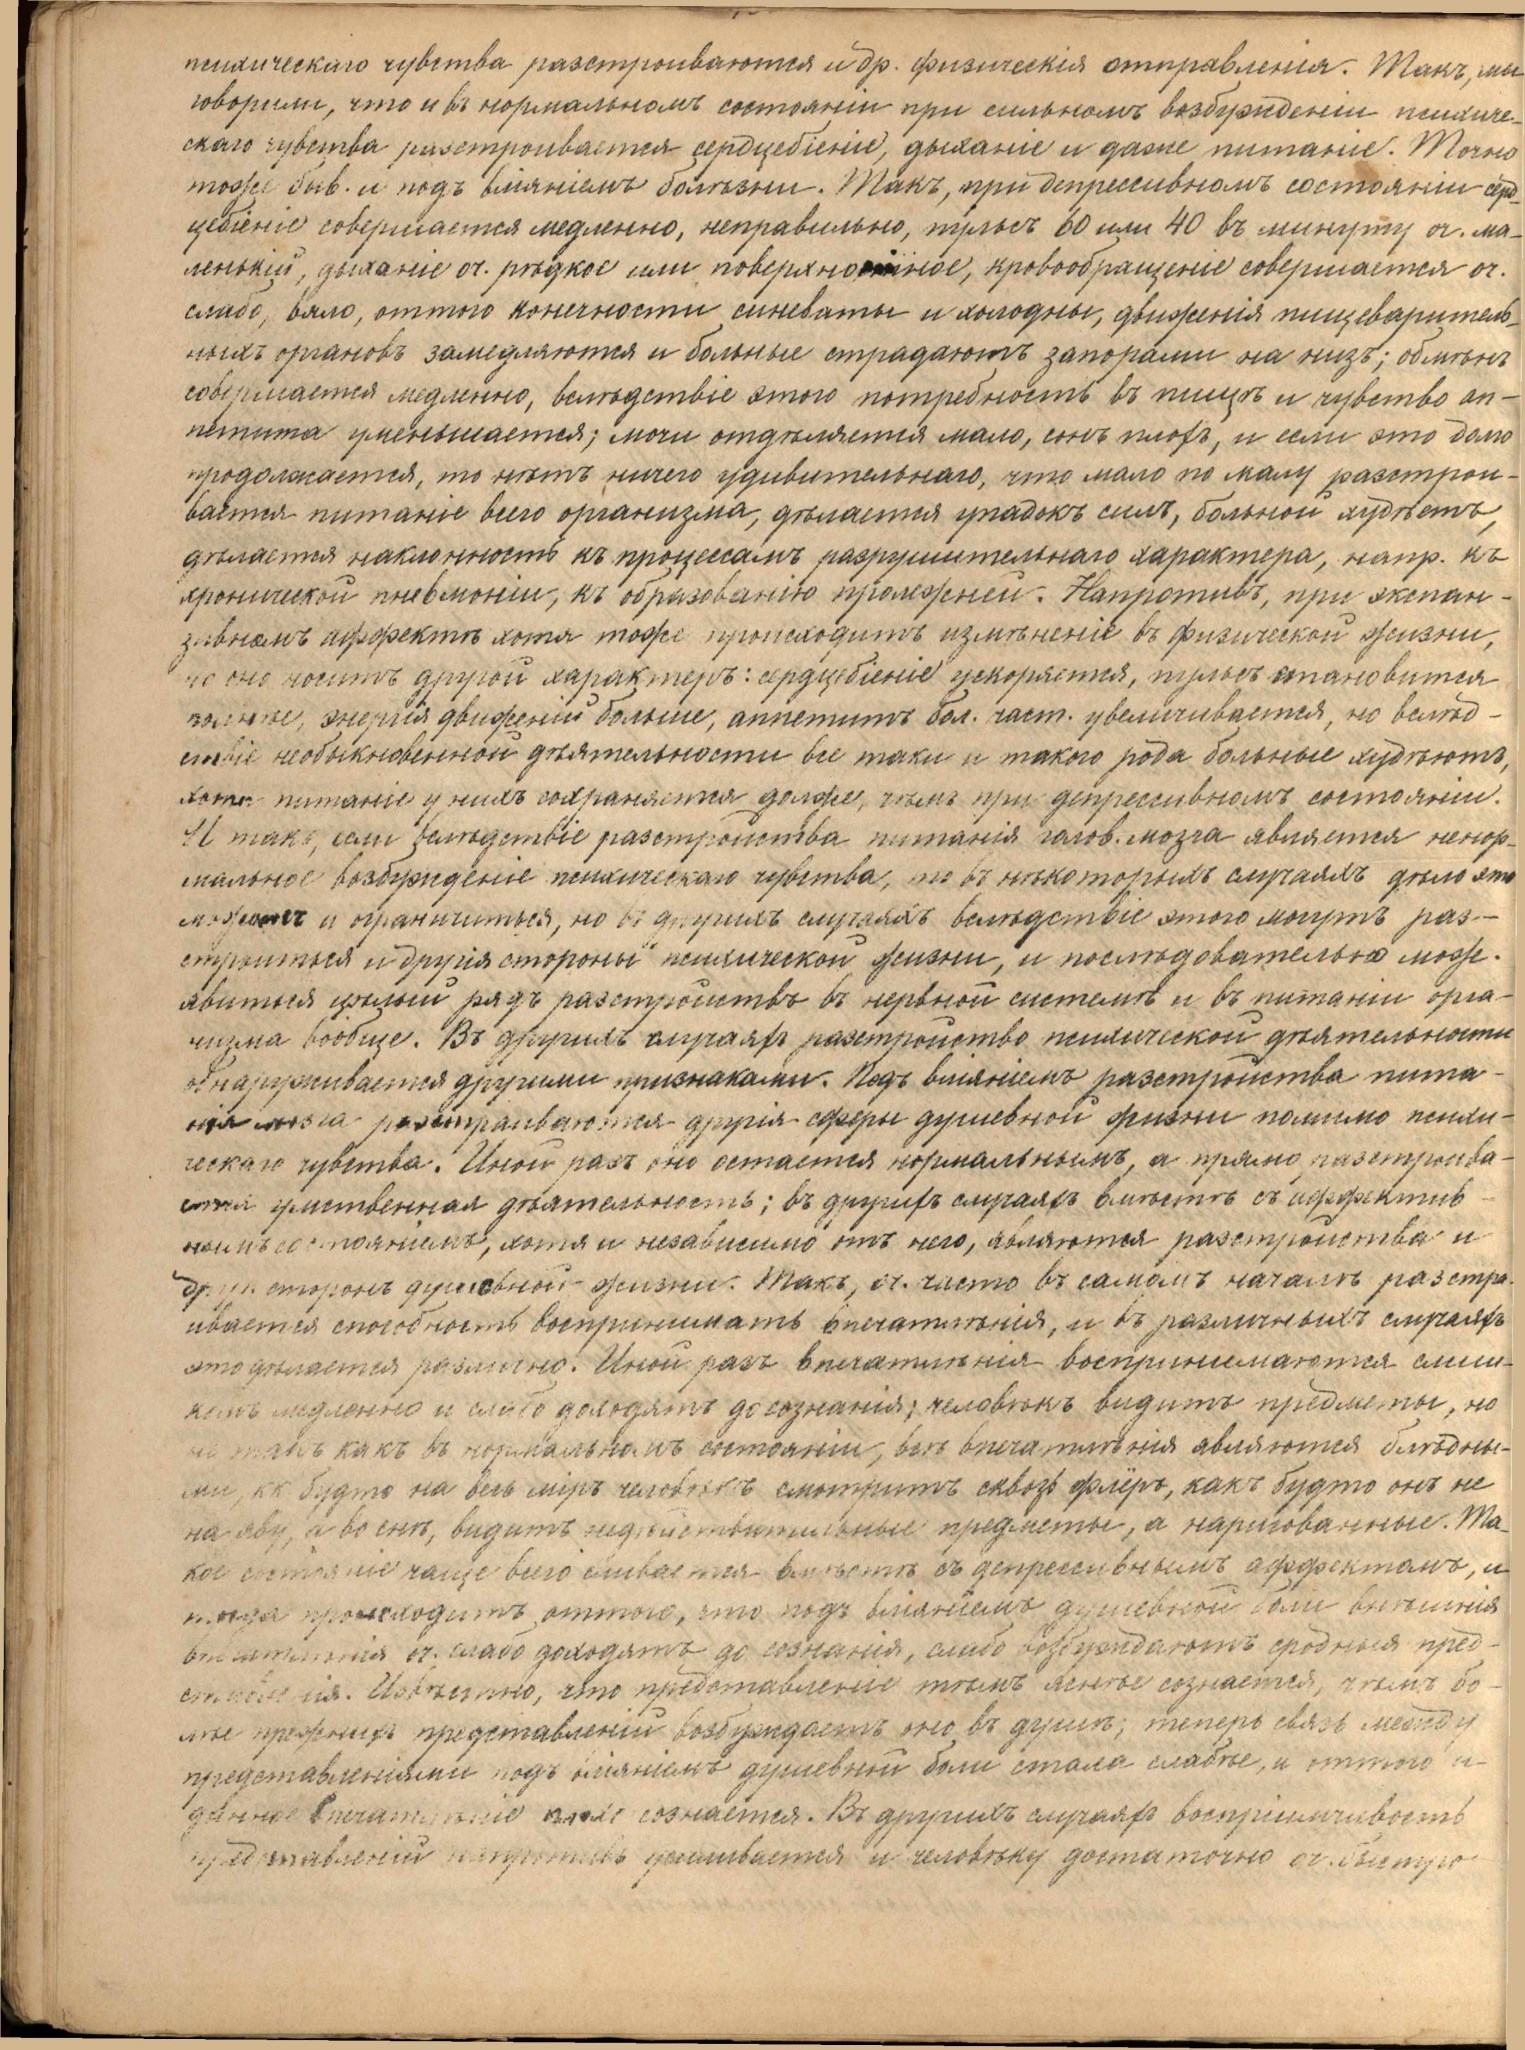 психическаго чувства разстроиваются и др. физическія отправленія. Такъ, мы
говорили, что и въ нормальномъ состояніи при сильномъ возбужденіи психиче-
скаго чувства разстроивается сердцебіеніе, дыханіе и даже питаніе. Точно
тоже быв. и подъ вліяніемъ болѣзни. Такъ, при депрессивномъ состояніи серд-
цебіеніе совершается медленно, неправильно, пульсъ 60 или 40 въ минуту оч. ма-
ленькій, дыханіе оч. рѣдкое или поверхностное, кровообращеніе совершается оч.
слабо, вяло, оттого конечности синеваты и холодны, движенія пищеваритель-
ныхъ органовъ замедляются и больные страдаютъ запорами на низъ; обмѣнъ
совершается медленно, вслѣдствіе этого потребность въ пищѣ и чувство ап-
петита уменьшается; мочи отдѣляется мало, сонъ плохъ, и если это долго
продолжается, то нѣтъ ничего удивительнаго, что мало по малу разстрои-
вается питаніе всего организма, дѣлается упадокъ силъ, больной худѣетъ,
дѣлается наклонность къ процессамъ разрушительнаго характера, напр. къ
хронической пневмоніи, къ образованію пролежней. Напротивъ, при экспан-
зивномъ аффектѣ хотя тоже происходитъ измѣненіе въ физической жизни,
но оно носитъ другой характеръ: сердцебіеніе ускоряется, пульсъ становится
полнѣе, энергія движеній больше, аппетитъ бол. част. увеличивается, но вслѣд-
ствіе необыкновенной дѣятельности все таки и такого рода больные худѣютъ,
хотя питаніе у нихъ сохраняется долже, чѣмъ при депрессивномъ состояніи.
И такъ, если вслѣдствіе разстройства питанія голов. мозга является ненор-
мальное возбужденіе психическаго чувства, то въ нѣкоторыхъ случаяхъ дѣло этo
можетъ и ограничиться, но въ другихъ случаяхъ вслѣдствіе этого могутъ раз-
строиться и другія стороны психической жизни, и послѣдовательно мож.
явиться цѣлый рядъ разстройствъ въ нервной системѣ и въ питаніи орга-
низма вообще. Въ другихъ случаяхъ разстройство психической дѣятельности
обнаруживается другими признаками. Подъ вліяніемъ разстройства пита-
нія мозга разстраиваются другія сферы душевной жизни помимо психи-
ческаго чувства. Иной разъ оно остается нормальнымъ, а прямо разстроива-
ется умственная дѣятельность; въ другихъ случаяхъ вмѣстѣ съ аффектив-
нымъ состояніемъ, хотя и независимо отъ него, являются разстройства и
друг. сторонъ душевной жизни. Такъ, оч. часто въ самомъ началѣ разстра-
ивается способность воспринимать впечатлѣнія, и въ различныхъ случаяхъ
это дѣлается различно. Иной разъ впечатлѣнія воспринимаются слиш-
комъ медленно и слабо доходятъ до сознанія; человѣкъ видитъ предметы, но
не такъ какъ въ нормальномъ состояніи, всѣ впечатлѣнія являются блѣдны-
ми, кк будто на весь міръ человѣкъ смотритъ сквозь флёръ, какъ будто онъ не
на яву, а во снѣ, видитъ недѣйствительные предметы, а нарисованные. Та-
кое состояніе чаще всего сливается вмѣстѣ съ депрессивнымъ аффектомъ, и
тогда происходитъ оттого, что подъ вліяніемъ душевной боли внѣшнія
впечатлѣнія оч. слабо доходятъ до сознанія, слабо возбуждаютъ сродныя пред-
ставленія. Извѣстно, что представленіе тѣмъ яснѣе сознается, чѣмъ бо-
лѣе прежнихъ представленій возбуждаетъ оно въ душѣ; теперь связь между
представленіями подъ вліяніемъ душевной боли стала слабѣе, и оттого и
данное впечатлѣніе сознается. Въ другихъ случаяхъ воспріимчивость
представленій напротивъ усиливается и человѣку достаточно оч. быстро